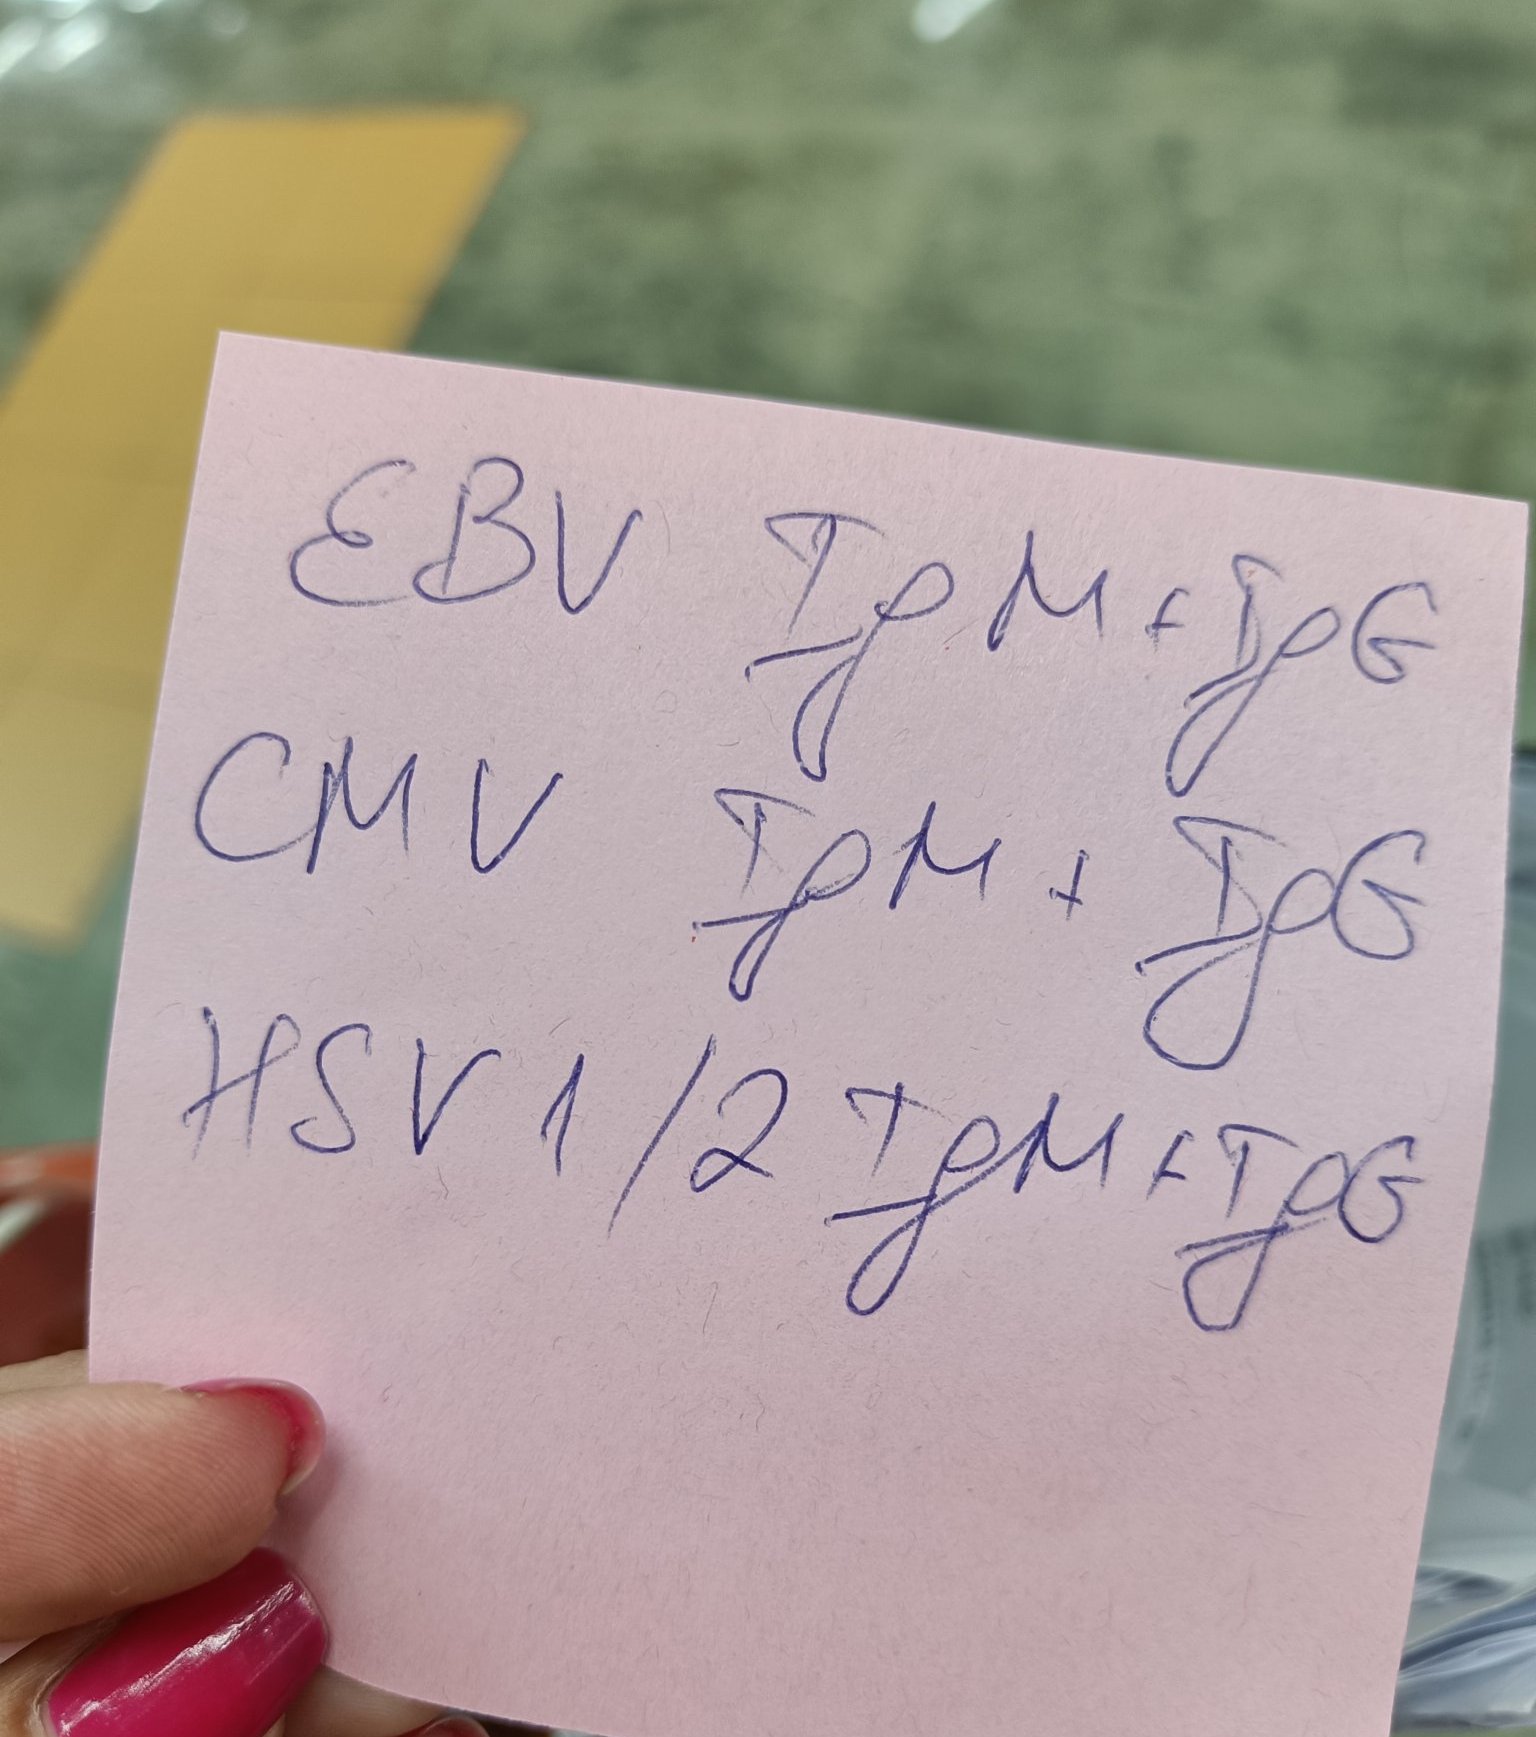 EBV IgM + IgG
CMV IgM + IgG
HSV 1/2 IgM + IgG